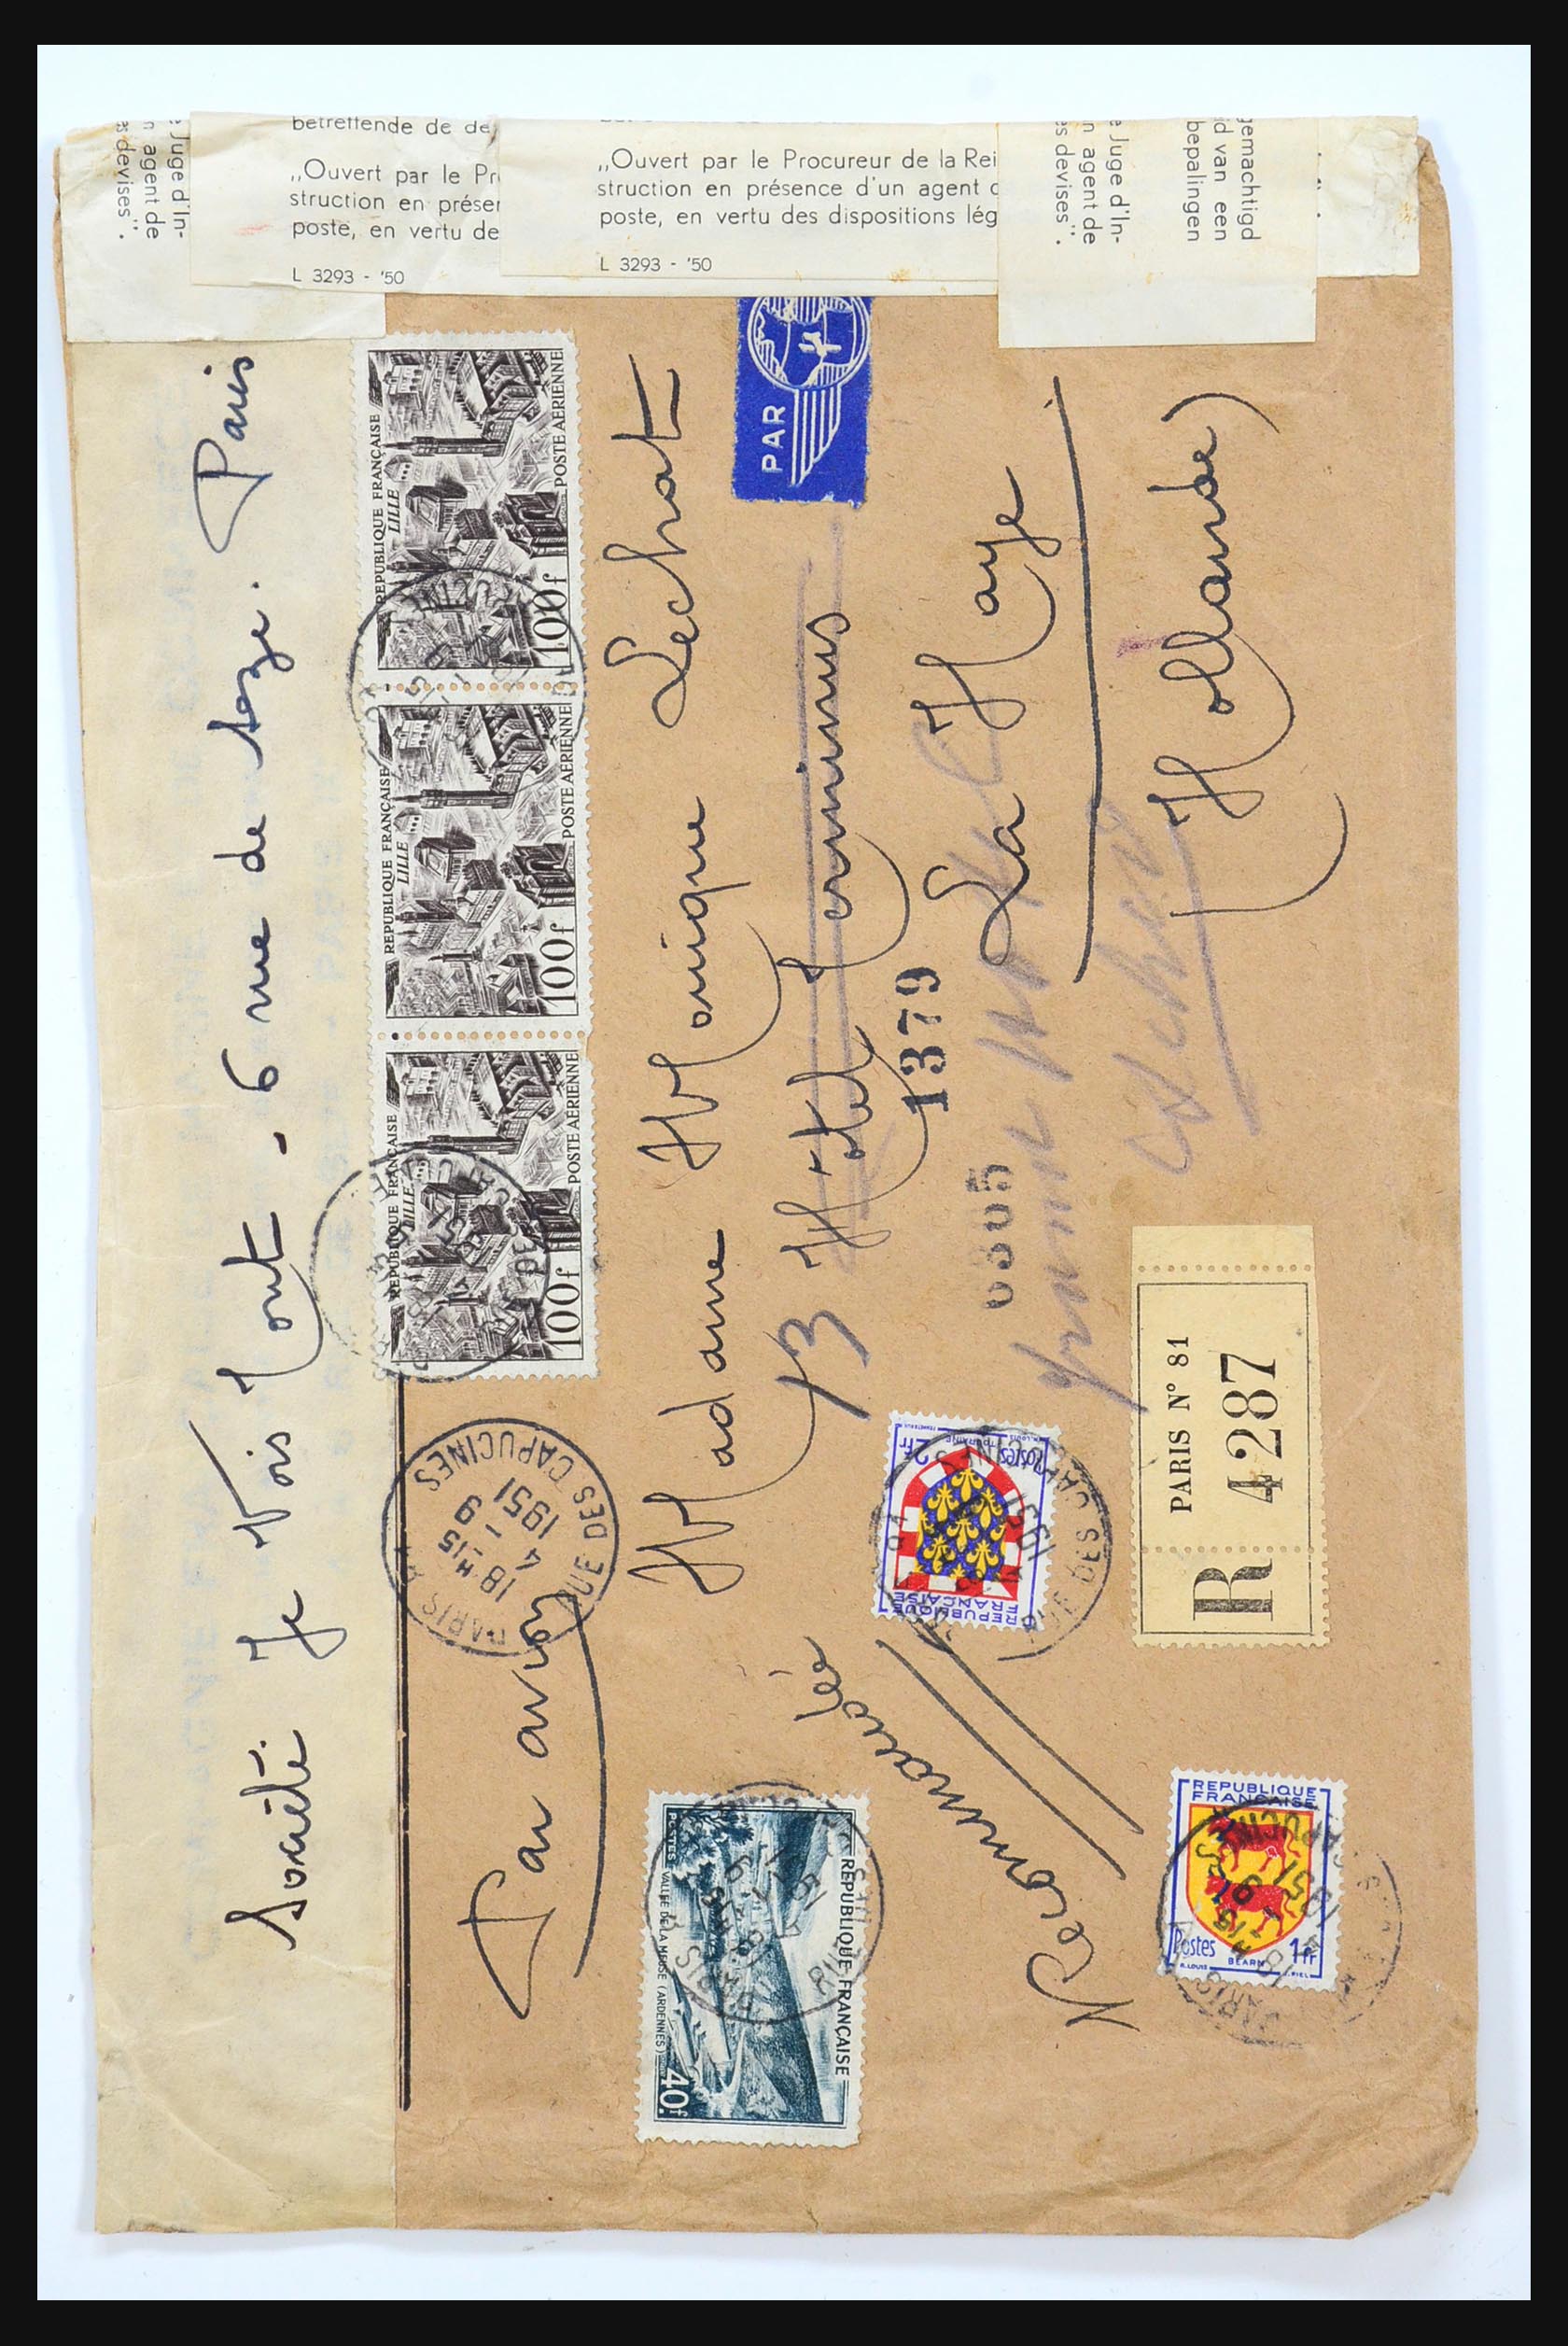 e Juge d'In-
n agent de
es devises".
betreffende de de
„Ouvert par le Pr
struction en présen
poste, en vertu de
L 3293 - '50
„Ouvert par le Procureur de la Rei
struction en présence d'un agent d
poste, en vertu des dispositions lég
L 3293 - '50
e Juge d'In-
n agent de
es devises".
gemachtigd
id van een
bepalingen
Société. Je Vois Tout - 6 rue de Sèze. Paris
REPUBLIQUE FRANÇAISE
LILLE
100f
POSTE AERIENNE
REPUBLIQUE FRANÇAISE
LILLE
100f
POSTE AERIENNE
REPUBLIQUE FRANÇAISE
LILLE
100f
POSTE AERIENNE
PARIS
RUE DES CAPUCINES
18 H 15
4 - 9
1951
Par avion
PAR
Madame Monique Lechat
Hôtel Terminus
73
1379
La Haye
0305
(Hollande)
Recommandée
POSTES
VALLÉE DE LA MEUSE (ARDENNES)
40f
REPUBLIQUE FRANÇAISE
REPUBLIQUE
FRANÇAISE
Postes
2fr
TOURAINE
RUE DES CA
1951
PARIS N° 81
R 4287
REPUBLIQUE
FRANÇAISE
Postes
1fr
R.LOUIS
BEARN
PIEL